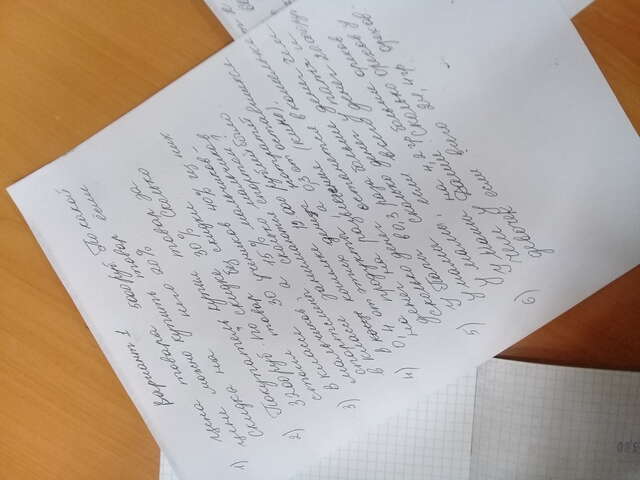 Вариант 1
1) Цена товара 5000 руб. По какой
цене можно купить товар если
скидка на него 20%
2) Покупатель купил товар за
3200 руб. по скидке 30% Сколько
стоил товар без скидки
3) В классе 30 учеников 40% из них
мальчиков, а 15% мальчиков -
спортсмены сколько мальчиков
в классе занимаются спортом?
4) В кошельке 19 000 рублей было.
0,4 от этих денег потратят
на продукты, а 0,3 от оставшихся
денег на развлечения (кино).
Сколько денег останется в кошельке
5) У Папы в 0,3 раза больше денег чем
у мамы сколько денег у папы и
у мамы, если всего денег 26 000 руб
6) У Маши на 4,2 гр больше орехов
чем у Даши, сколько орехов у
девочек если всего 24,4 гр орехов.